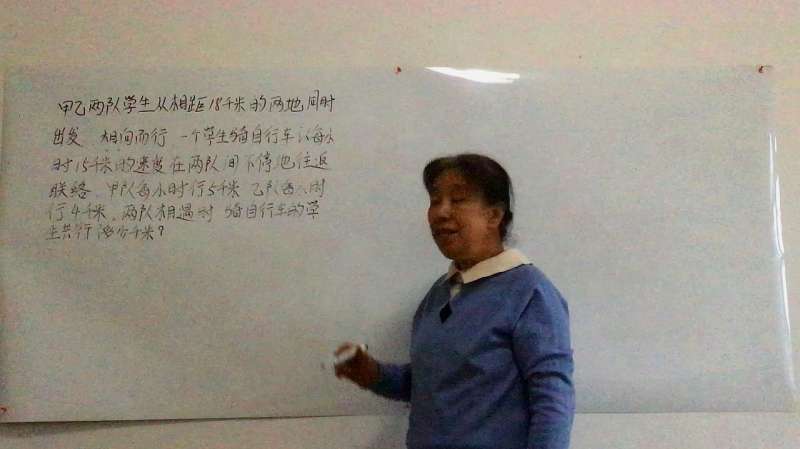 甲乙两队学生从相距18千米的两地同时
出发 相向而行 一个学生骑自行车以每小
时15千米的速度在两队间不停地往返
联络 甲队每小时行5千米 乙队每小时
行4千米,两队相遇时 骑自行车的学
生共行多少千米?